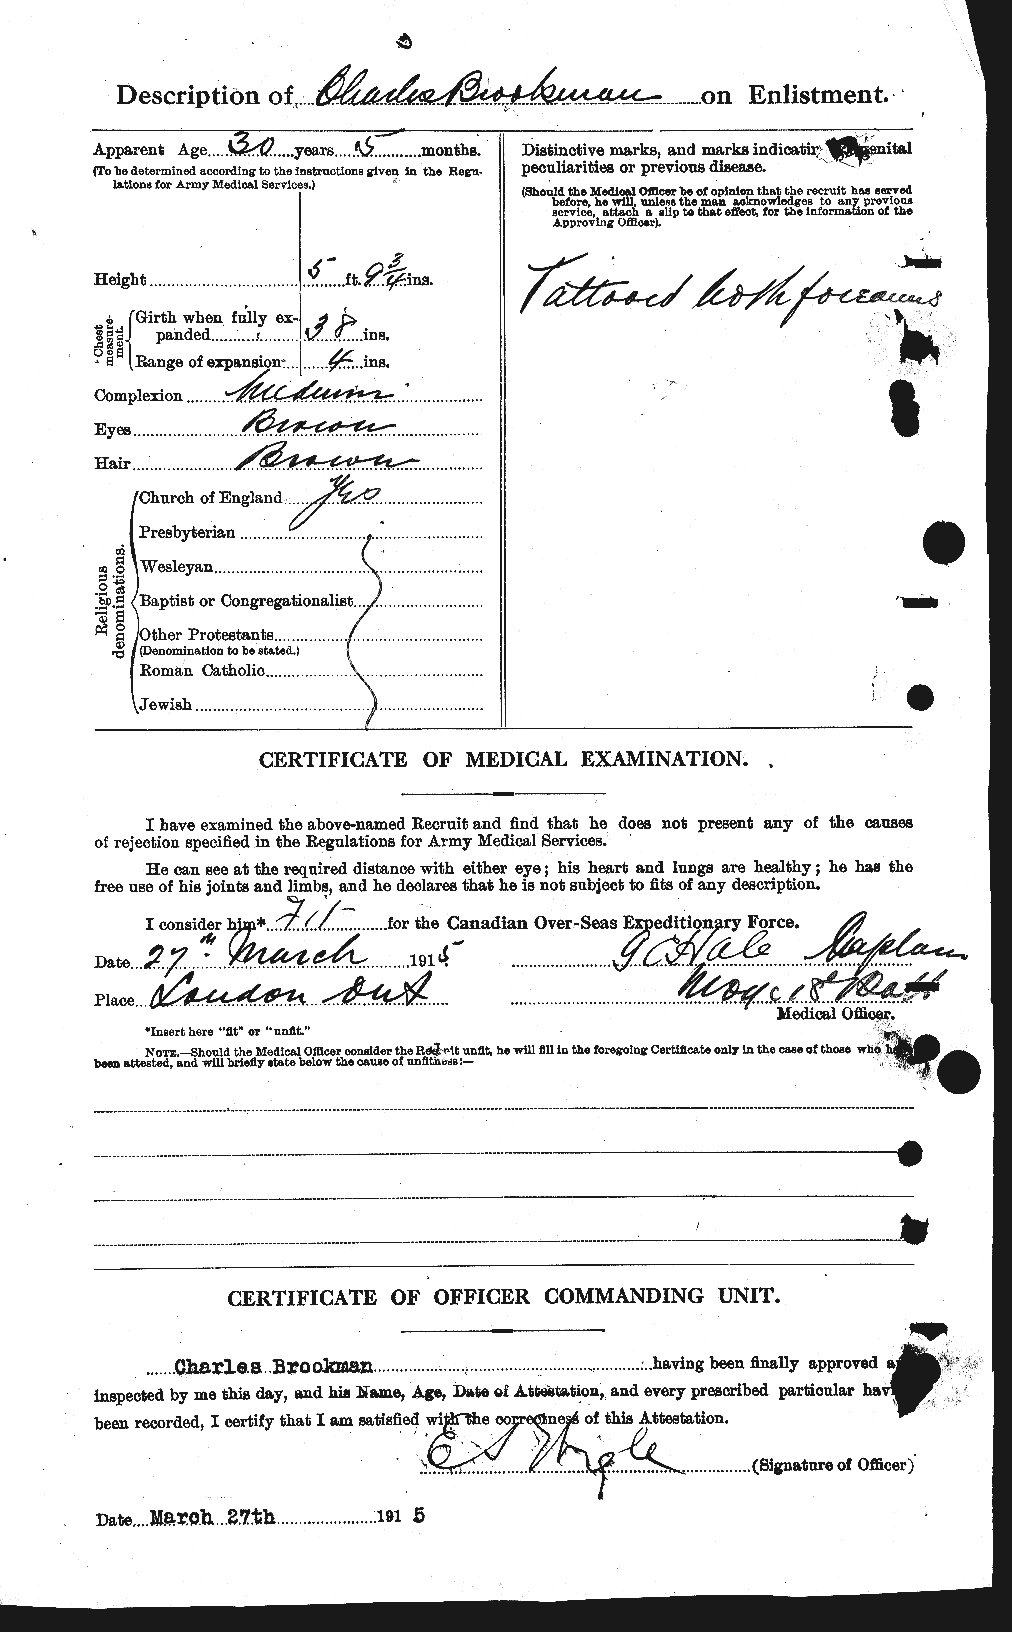 Description of Charles Brookman on Enlistment.
Apparent Age 30 years 5 months.
(To be determined according to the instructions given in the Regu-
lations for Army Medical Services.)
Height 5 ft. 9 3/4 ins.
Chest measure-
ment.
Girth when fully ex-
panded 38 ins.
Range of expansion 4 ins.
Complexion Medium
Eyes Brown
Hair Brown
Religious
denominations.
Church of England Yes
Presbyterian
Wesleyan
Baptist or Congregationalist
Other Protestants
(Denomination to be stated.)
Roman Catholic
Jewish
Distinctive marks, and marks indicating congenital
peculiarities or previous disease.
(Should the Medical Officer be of opinion that the recruit has served
before, he will, unless the man acknowledges to any previous
service, attach a slip to that effect, for the information of the
Approving Officer).
Tattooed both forearms
CERTIFICATE OF MEDICAL EXAMINATION.
I have examined the above-named Recruit and find that he does not present any of the causes
of rejection specified in the Regulations for Army Medical Services.
He can see at the required distance with either eye; his heart and lungs are healthy; he has the
free use of his joints and limbs, and he declares that he is not subject to fits of any description.
I consider him* Fit for the Canadian Over-Seas Expeditionary Force.
Date 27th March 1915
G C Hale Captain
Place London Ont
M.O. 18 Batt
Medical Officer.
*Insert here "fit" or "unfit."
NOTE.—Should the Medical Officer consider the Recruit unfit, he will fill in the foregoing Certificate only in the case of those who have
been attested, and will briefly state below the cause of unfitness:—
CERTIFICATE OF OFFICER COMMANDING UNIT.
Charles Brookman having been finally approved and
inspected by me this day, and his Name, Age, Date of Attestation, and every prescribed particular having
been recorded, I certify that I am satisfied with the correctness of this Attestation.
E S Wigle (Signature of Officer)
Date March 27th 1915